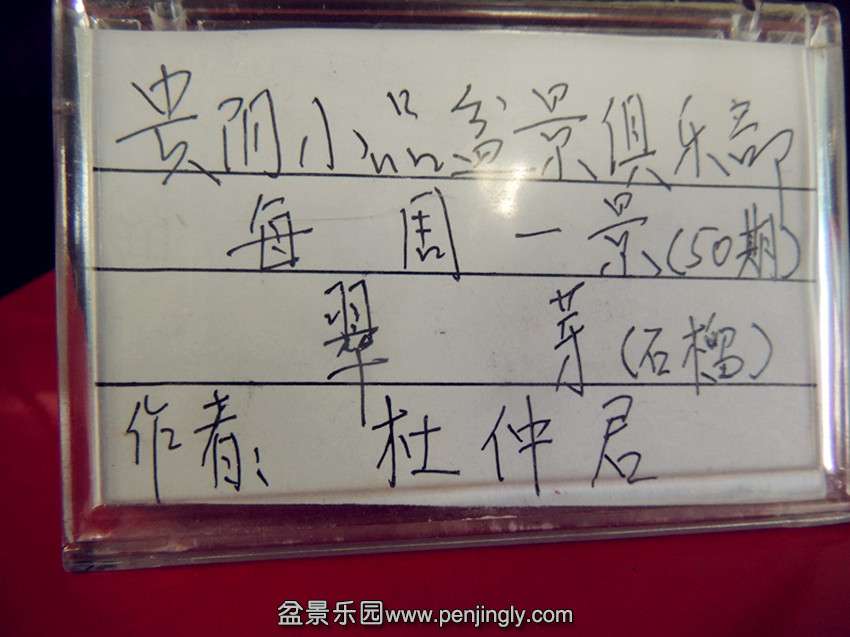 贵阴小品盆景俱乐部
每周一景(50期)
翠芽(石榴)
作者:杜仲君
盆景乐园www.penjingly.com